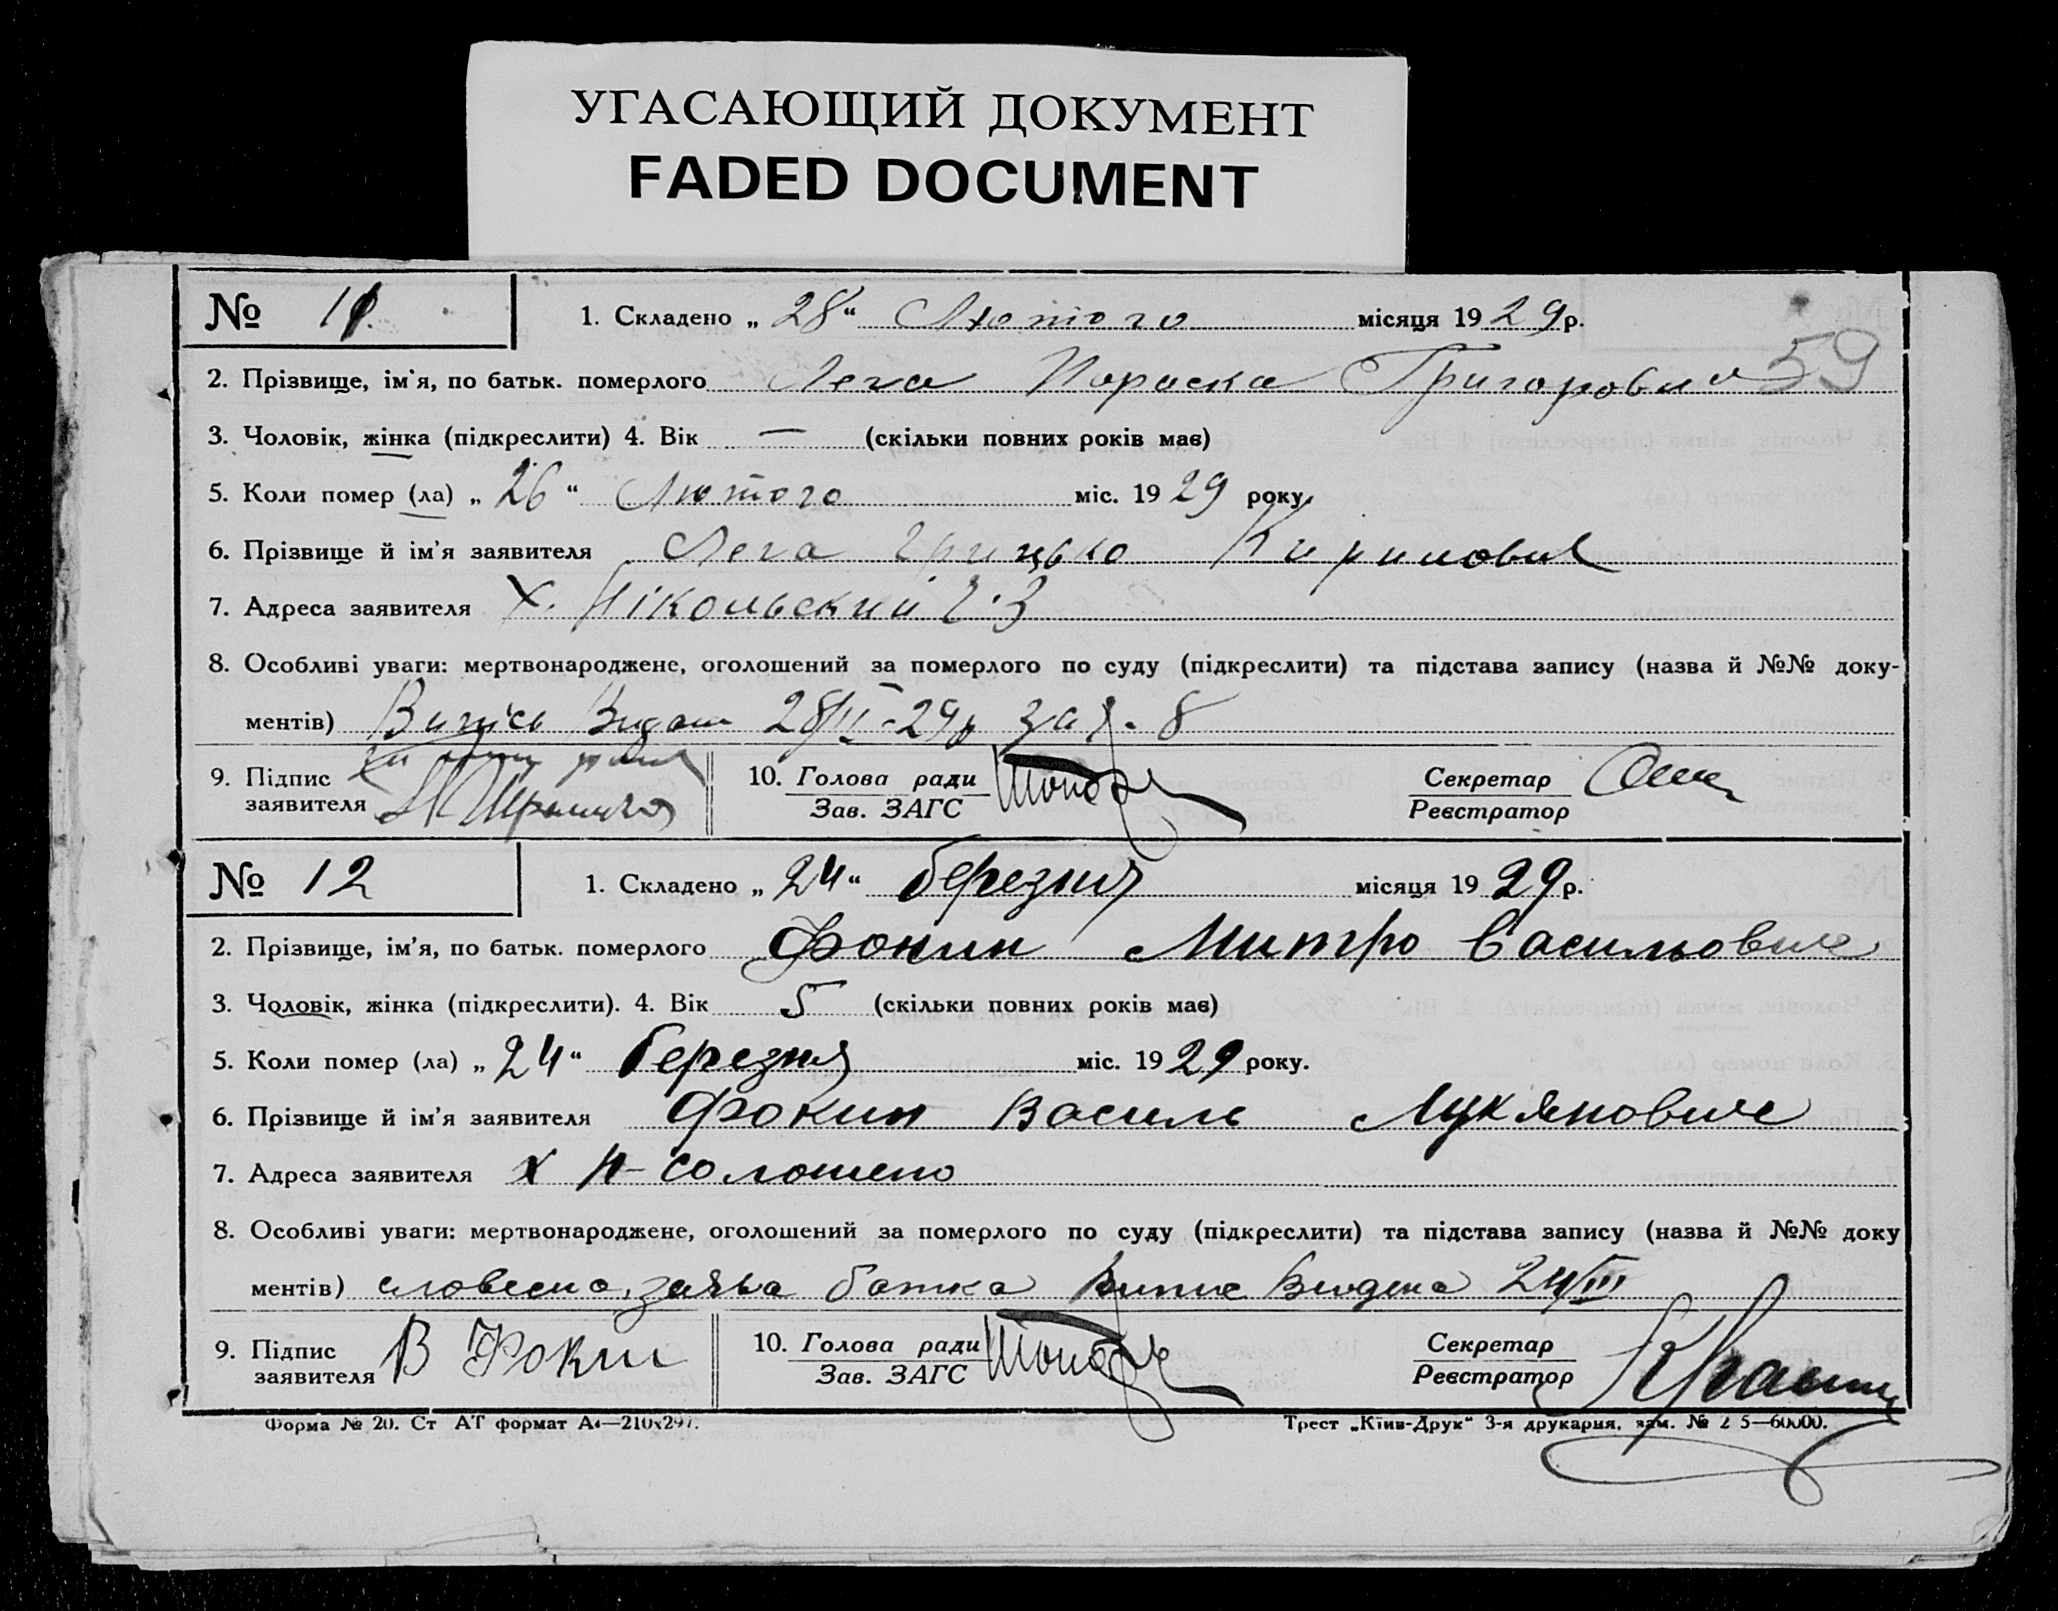 УГАСАЮЩИЙ ДОКУМЕНТ
FADED DOCUMENT
№ 11. 1. Складено „ 28 “ Лютого місяця 1929 р.
59
2. Прізвище, ім'я, по батьк. померлого Лега Параска Григоровна
3. Чоловік, жінка (підкреслити) 4. Вік — (скільки повних років має)
5. Коли помер (ла) „ 26 “ Лютого міс. 1929 року.
6. Прізвище й ім'я заявителя Лега Грицько Кирилович
7. Адреса заявителя Х. Нікольский
8. Особливі уваги: мертвонароджене, оголошений за померлого по суду (підкреслити) та підстава запису (назва й №№ доку-
ментів) Випісь Видат 28/II-29р за № 8
9. Підпис заявителя
10. Голова ради
Зав. ЗАГС
Секретар
Реєстратор
№ 12 1. Складено „ 24 “ березня місяця 1929 р.
2. Прізвище, ім'я, по батьк. померлого Фокин Митро Васильович
3. Чоловік, жінка (підкреслити). 4. Вік 5 (скільки повних років має)
5. Коли помер (ла) „ 24 “ березня міс. 1929 року.
6. Прізвище й ім'я заявителя Фокин Василь Лукянович
7. Адреса заявителя х Н-солошено
8. Особливі уваги: мертвонароджене, оголошений за померлого по суду (підкреслити) та підстава запису (назва й №№ доку
ментів) словесна заява батка Випис Видена 24/III
9. Підпис заявителя В Фокин
10. Голова ради
Зав. ЗАГС
Секретар
Реєстратор
Форма № 20. Ст АТ формат А4—210х297.
Трест „Київ-Друк“ 3-я друкарня, зам. № 2 5—60000.